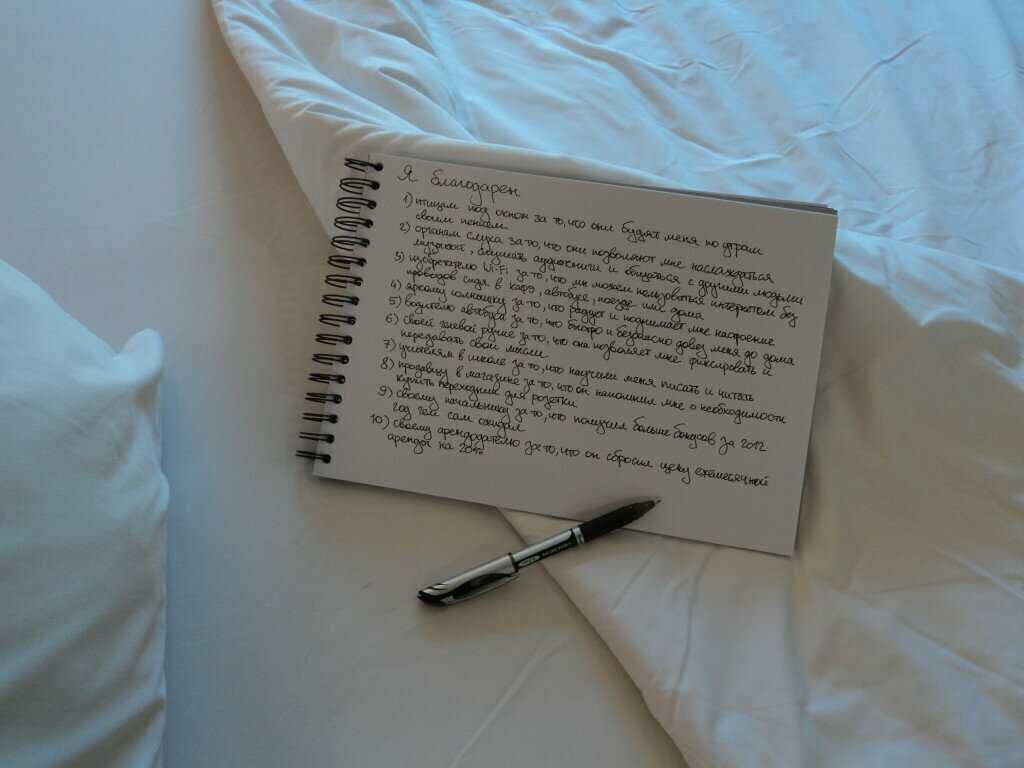 Я благодарен
1) птицам под окном за то, что они будят меня по утрам
своим пением.
2) органам слуха за то, что они позволяют мне наслаждаться
музыкой, слушать аудиокниги и общаться с другими людьми
3) изобретателю Wi-Fi за то, что мы можем пользоваться интернетом без
проводов сидя в кафе, автобусе, поезде или дома
4) яркому солнышку за то, что радует и поднимает мне настроение
5) водителю автобуса за то, что быстро и безопасно довёз меня до дома
6) своей гелевой ручке за то, что она позволяет мне фиксировать и
передавать свои мысли
7) учителям в школе за то, что научили меня писать и читать
8) продавцу в магазине за то, что он напомнил мне о необходимости
купить переходник для розетки
9) своему начальнику за то, что получил больше бонусов за 2012
год чем сам ожидал
10) своему арендодателю за то, что он сбросил цену ежемесячной
аренды на 20%